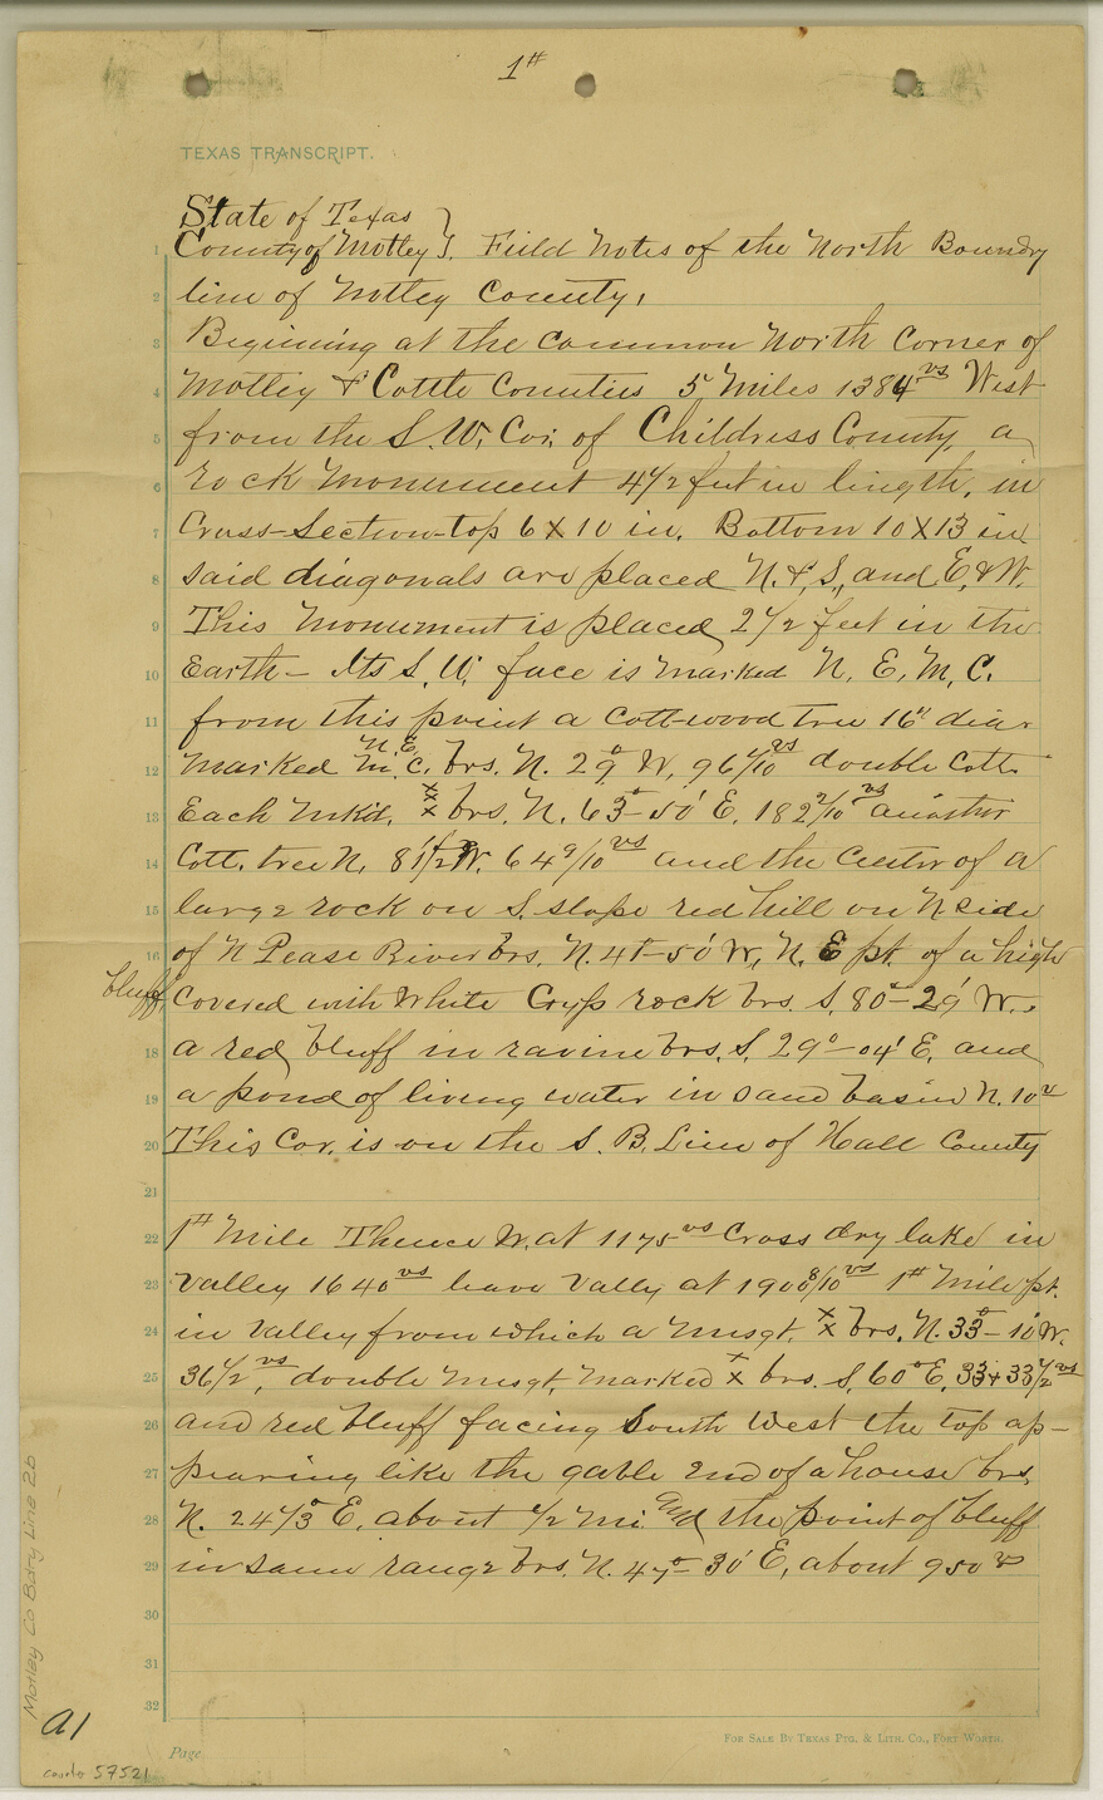 1st
TEXAS TRANSCRIPT.
State of Texas }
County of Motley }. Field Notes of the North Boundry
line of Motley County,
Beginning at the common North Corner of
Motley & Cottle Counties 5 Miles 1384 vs West
from the S. W. Cor. of Childress County, a
rock Monument 4 1/2 feet in length, in
Cross-Section-top 6 X 10 in. Bottom 10 X 13 in
said diagonals are placed N. & S., and E. & W.
This Monument is placed 2 1/2 feet in the
Earth - Its S. W. face is marked N. E. M. C.
from this point a Cottwood tree 16" diar
N. E.
marked M. C. brs. N. 29° W, 96 1/10 vs double Cott.
Each Mk'd. xxx brs. N. 63°-50' E. 182 2/10 vs another
Cott. tree N. 81 1/2° W. 64 9/10 vs and the Center of a
large rock on S. slope red hill on N. side
of N Pease River brs. N. 4°-50' W, N. E pt. of a high
bluff
Covered with White Gyp rock brs. S. 80°-29' W..
a red bluff in ravine brs. S. 29°-04' E. and
a pond of living water in sand basin N. 10 v
This Cor. is on the S. B. Line of Hall County
1st Mile Thence W. at 1175 vs Cross dry lake in
Valley 1640 vs leave Valley at 1900 8/10 vs 1st Mile pt.
in Valley from which a Mesqt. xx brs. N. 33°-10' W.
36 1/2 vs, double Mesqt, Marked xx brs. S. 60° E, 33 & 33 1/2 vs
and red bluff facing South West the top ap-
pearing like the gable End of a house brs,
N. 24 1/3° E, about 1/2 Mi. And the point of bluff
in same range brs. N. 47°-30' E, about 950 vs
1
2
3
4
5
6
7
8
9
10
11
12
13
14
15
16
18
19
20
21
22
23
24
25
26
27
28
29
30
31
32
Page
FOR SALE BY TEXAS PTG. & LITH. CO., FORT WORTH.
Motley Co Bdry Line 2b
A1
counter 57521